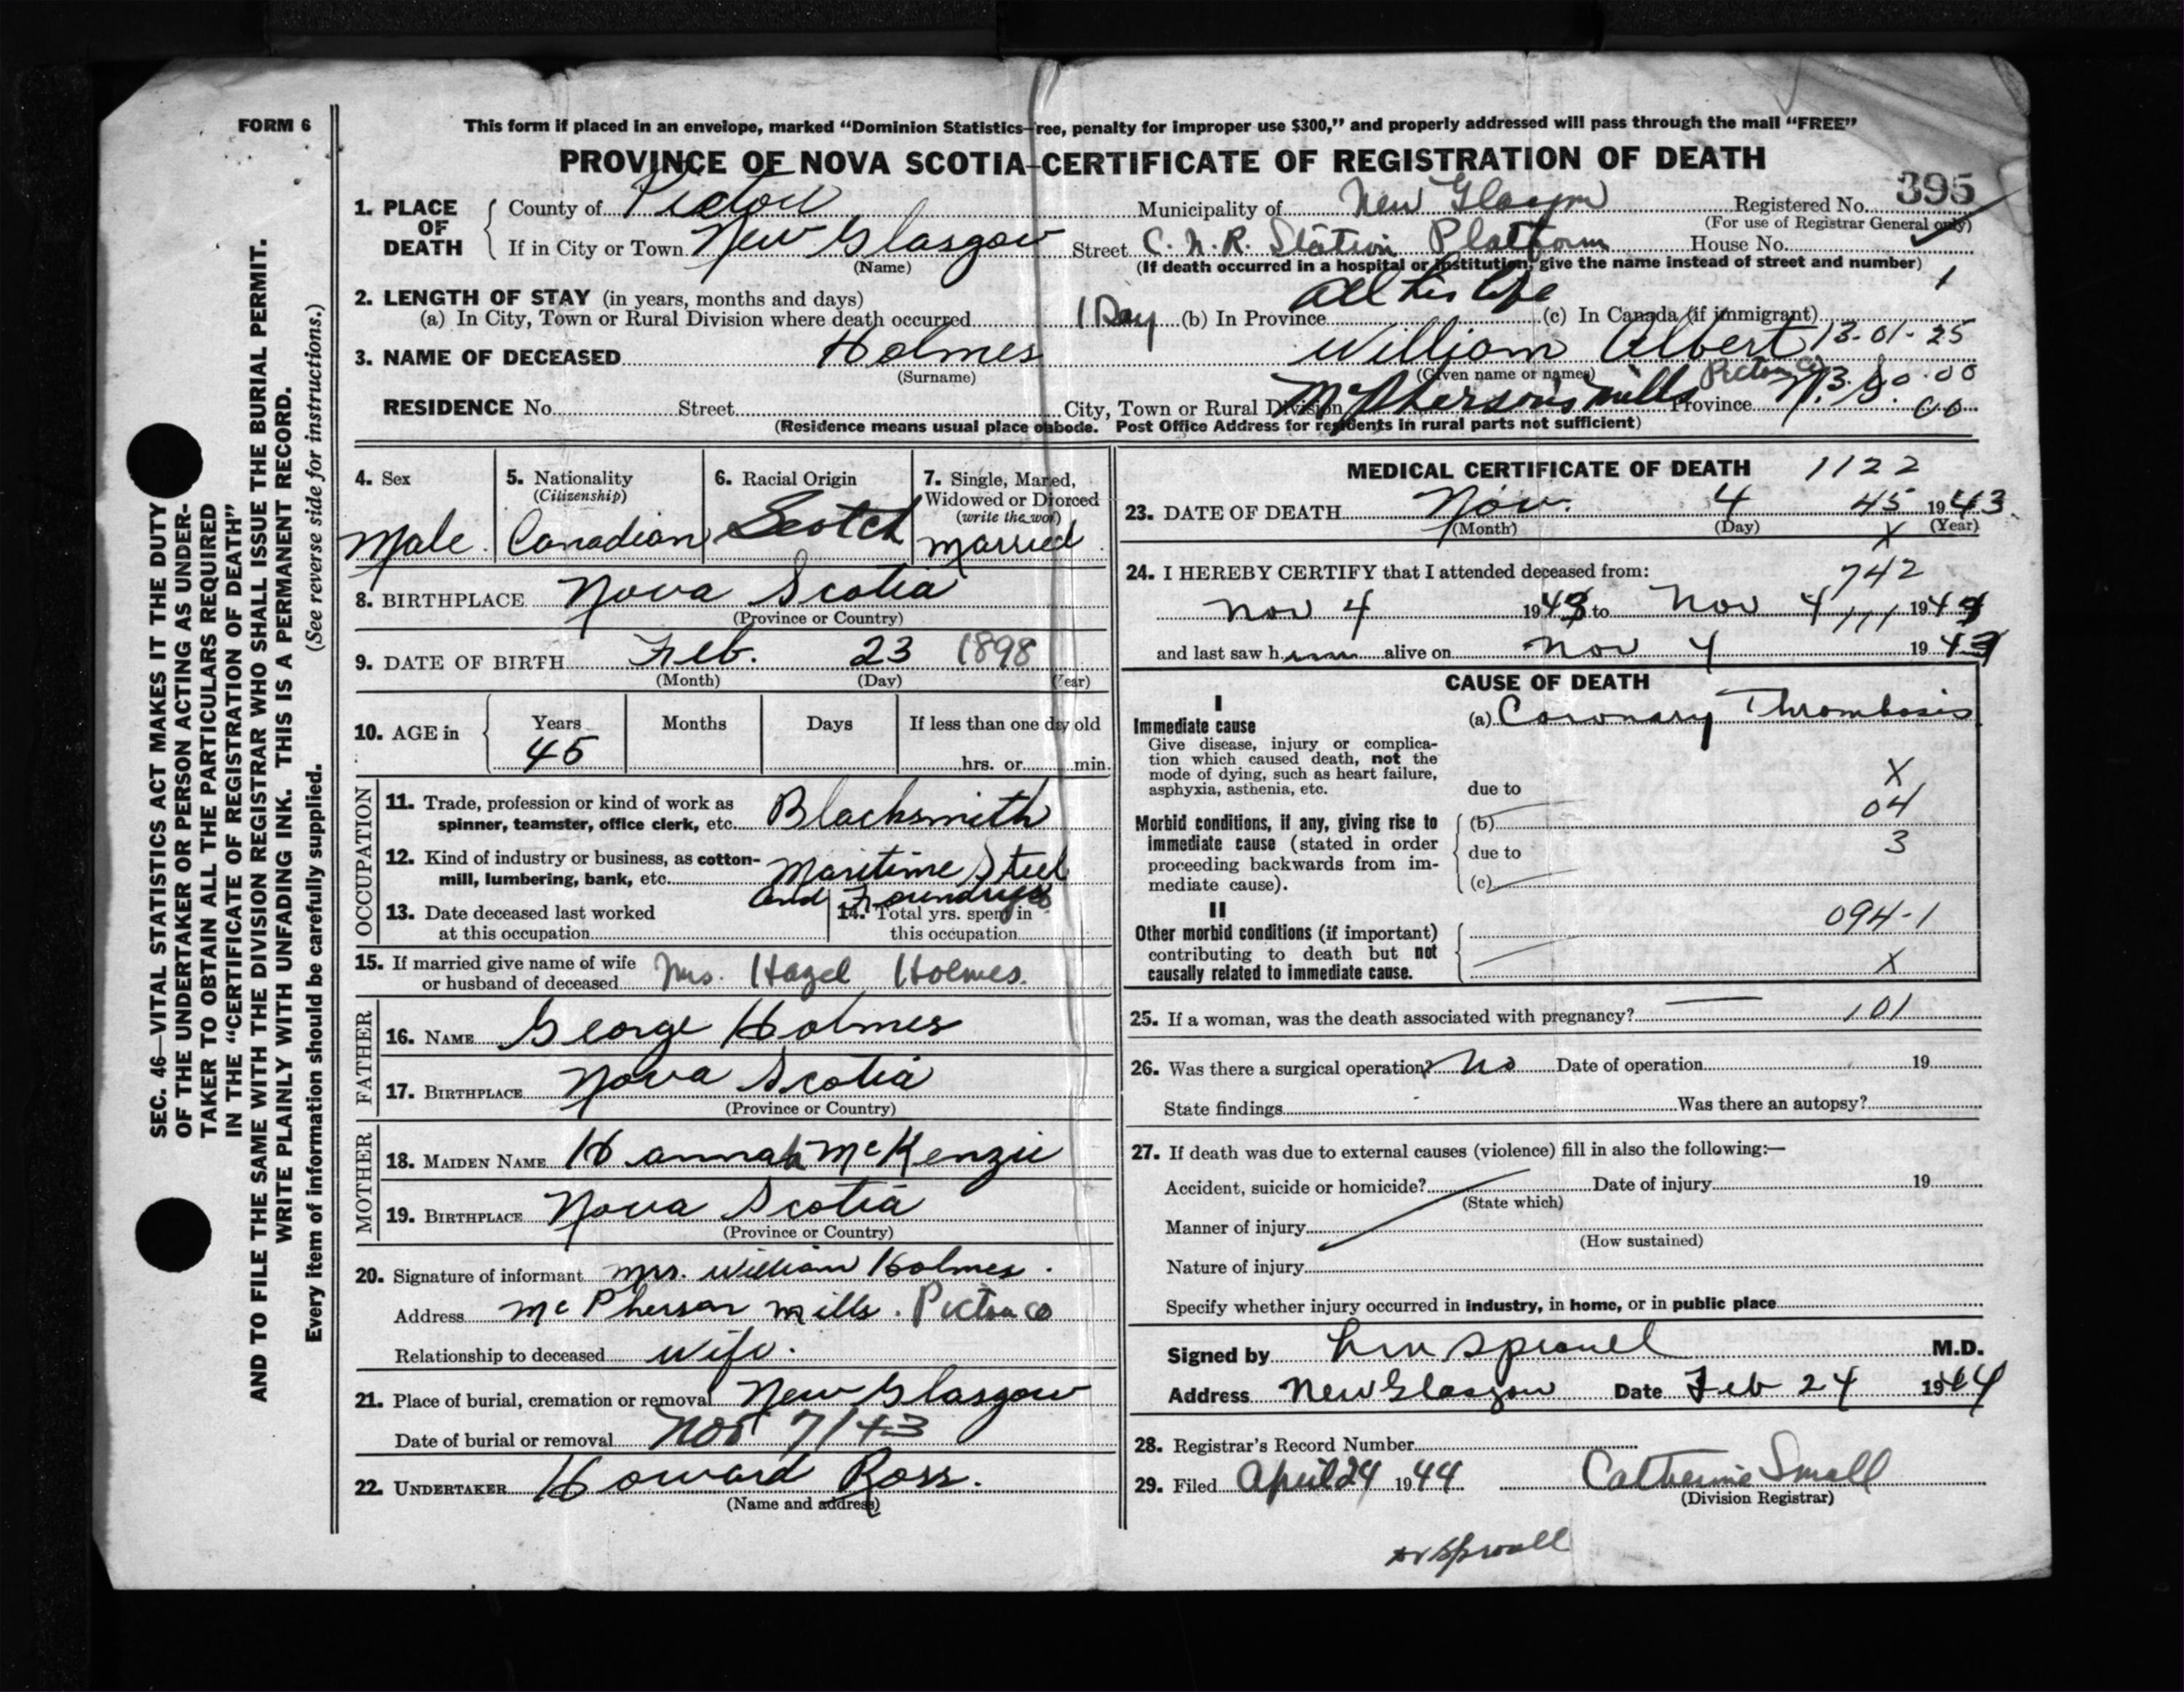 FORM 6
This form if placed in an envelope, marked “Dominion Statistics—Free, penalty for improper use $300,” and properly addressed will pass through the mail “FREE”
PROVINCE OF NOVA SCOTIA—CERTIFICATE OF REGISTRATION OF DEATH
395
1. PLACE OF DEATH
County of Pictou Municipality of New Glasgow Registered No.
(For use of Registrar General only)
If in City or Town New Glasgow Street C. N. R. Station Platform House No.
(Name) (If death occurred in a hospital or institution, give the name instead of street and number)
1
2. LENGTH OF STAY (in years, months and days)
(a) In City, Town or Rural Division where death occurred 1 Day (b) In Province all his life (c) In Canada (if immigrant)
3. NAME OF DECEASED Holmes William Albert 13-01-25
(Surname) (Given name or names)
RESIDENCE No. Street City, Town or Rural Division McPherson's Mills Pictou Co Province N. S.
00
(Residence means usual place of abode. Post Office Address for residents in rural parts not sufficient)
4. Sex Male
5. Nationality (Citizenship) Canadian
6. Racial Origin Scotch
7. Single, Married, Widowed or Divorced (write the word) Married
8. BIRTHPLACE Nova Scotia
(Province or Country)
9. DATE OF BIRTH Feb. 23 1898
(Month) (Day) (Year)
10. AGE in Years Months Days If less than one day old
45 hrs. or min.
OCCUPATION
11. Trade, profession or kind of work as
spinner, teamster, office clerk, etc. Blacksmith
12. Kind of industry or business, as cotton-
mill, lumbering, bank, etc. Maritime Steel
and Foundries
13. Date deceased last worked
at this occupation
14. Total yrs. spent in
this occupation
15. If married give name of wife
or husband of deceased Mrs. Hazel Holmes.
FATHER
16. NAME George Holmes
17. BIRTHPLACE Nova Scotia
(Province or Country)
MOTHER
18. MAIDEN NAME Hannah McKenzie
19. BIRTHPLACE Nova Scotia
(Province or Country)
20. Signature of informant Mrs. William Holmes.
Address McPherson Mills. Pictou Co
Relationship to deceased wife.
21. Place of burial, cremation or removal New Glasgow
Date of burial or removal Nov 7/43
22. UNDERTAKER Howard Ross.
(Name and address)
MEDICAL CERTIFICATE OF DEATH 1122
23. DATE OF DEATH Nov. 4 45 1943
(Month) (Day) X (Year)
24. I HEREBY CERTIFY that I attended deceased from: 742
Nov 4 1943 to Nov 4 111 1943
and last saw him alive on Nov 4 1943
CAUSE OF DEATH
I
Immediate cause (a) Coronary Thrombosis
Give disease, injury or complica-
tion which caused death, not the
mode of dying, such as heart failure,
asphyxia, asthenia, etc. due to
X
04
Morbid conditions, if any, giving rise to (b)
immediate cause (stated in order due to 3
proceeding backwards from im-
mediate cause). (c)
II
Other morbid conditions (if important) 094-1
contributing to death but not
causally related to immediate cause. X
25. If a woman, was the death associated with pregnancy? 101
26. Was there a surgical operation? No Date of operation 19
State findings Was there an autopsy?
27. If death was due to external causes (violence) fill in also the following:—
Accident, suicide or homicide? Date of injury 19
(State which)
Manner of injury
(How sustained)
Nature of injury
Specify whether injury occurred in industry, in home, or in public place
Signed by Sprouel M.D.
Address New Glasgow Date Feb 24 1944
28. Registrar's Record Number
29. Filed April 24 1944 Catherine Small
(Division Registrar)
Dr Sproull
SEC. 46—VITAL STATISTICS ACT MAKES IT THE DUTY
OF THE UNDERTAKER OR PERSON ACTING AS UNDER-
TAKER TO OBTAIN ALL THE PARTICULARS REQUIRED
IN THE “CERTIFICATE OF REGISTRATION OF DEATH”
AND TO FILE THE SAME WITH THE DIVISION REGISTRAR WHO SHALL ISSUE THE BURIAL PERMIT.
WRITE PLAINLY WITH UNFADING INK. THIS IS A PERMANENT RECORD.
Every item of information should be carefully supplied. (See reverse side for instructions.)